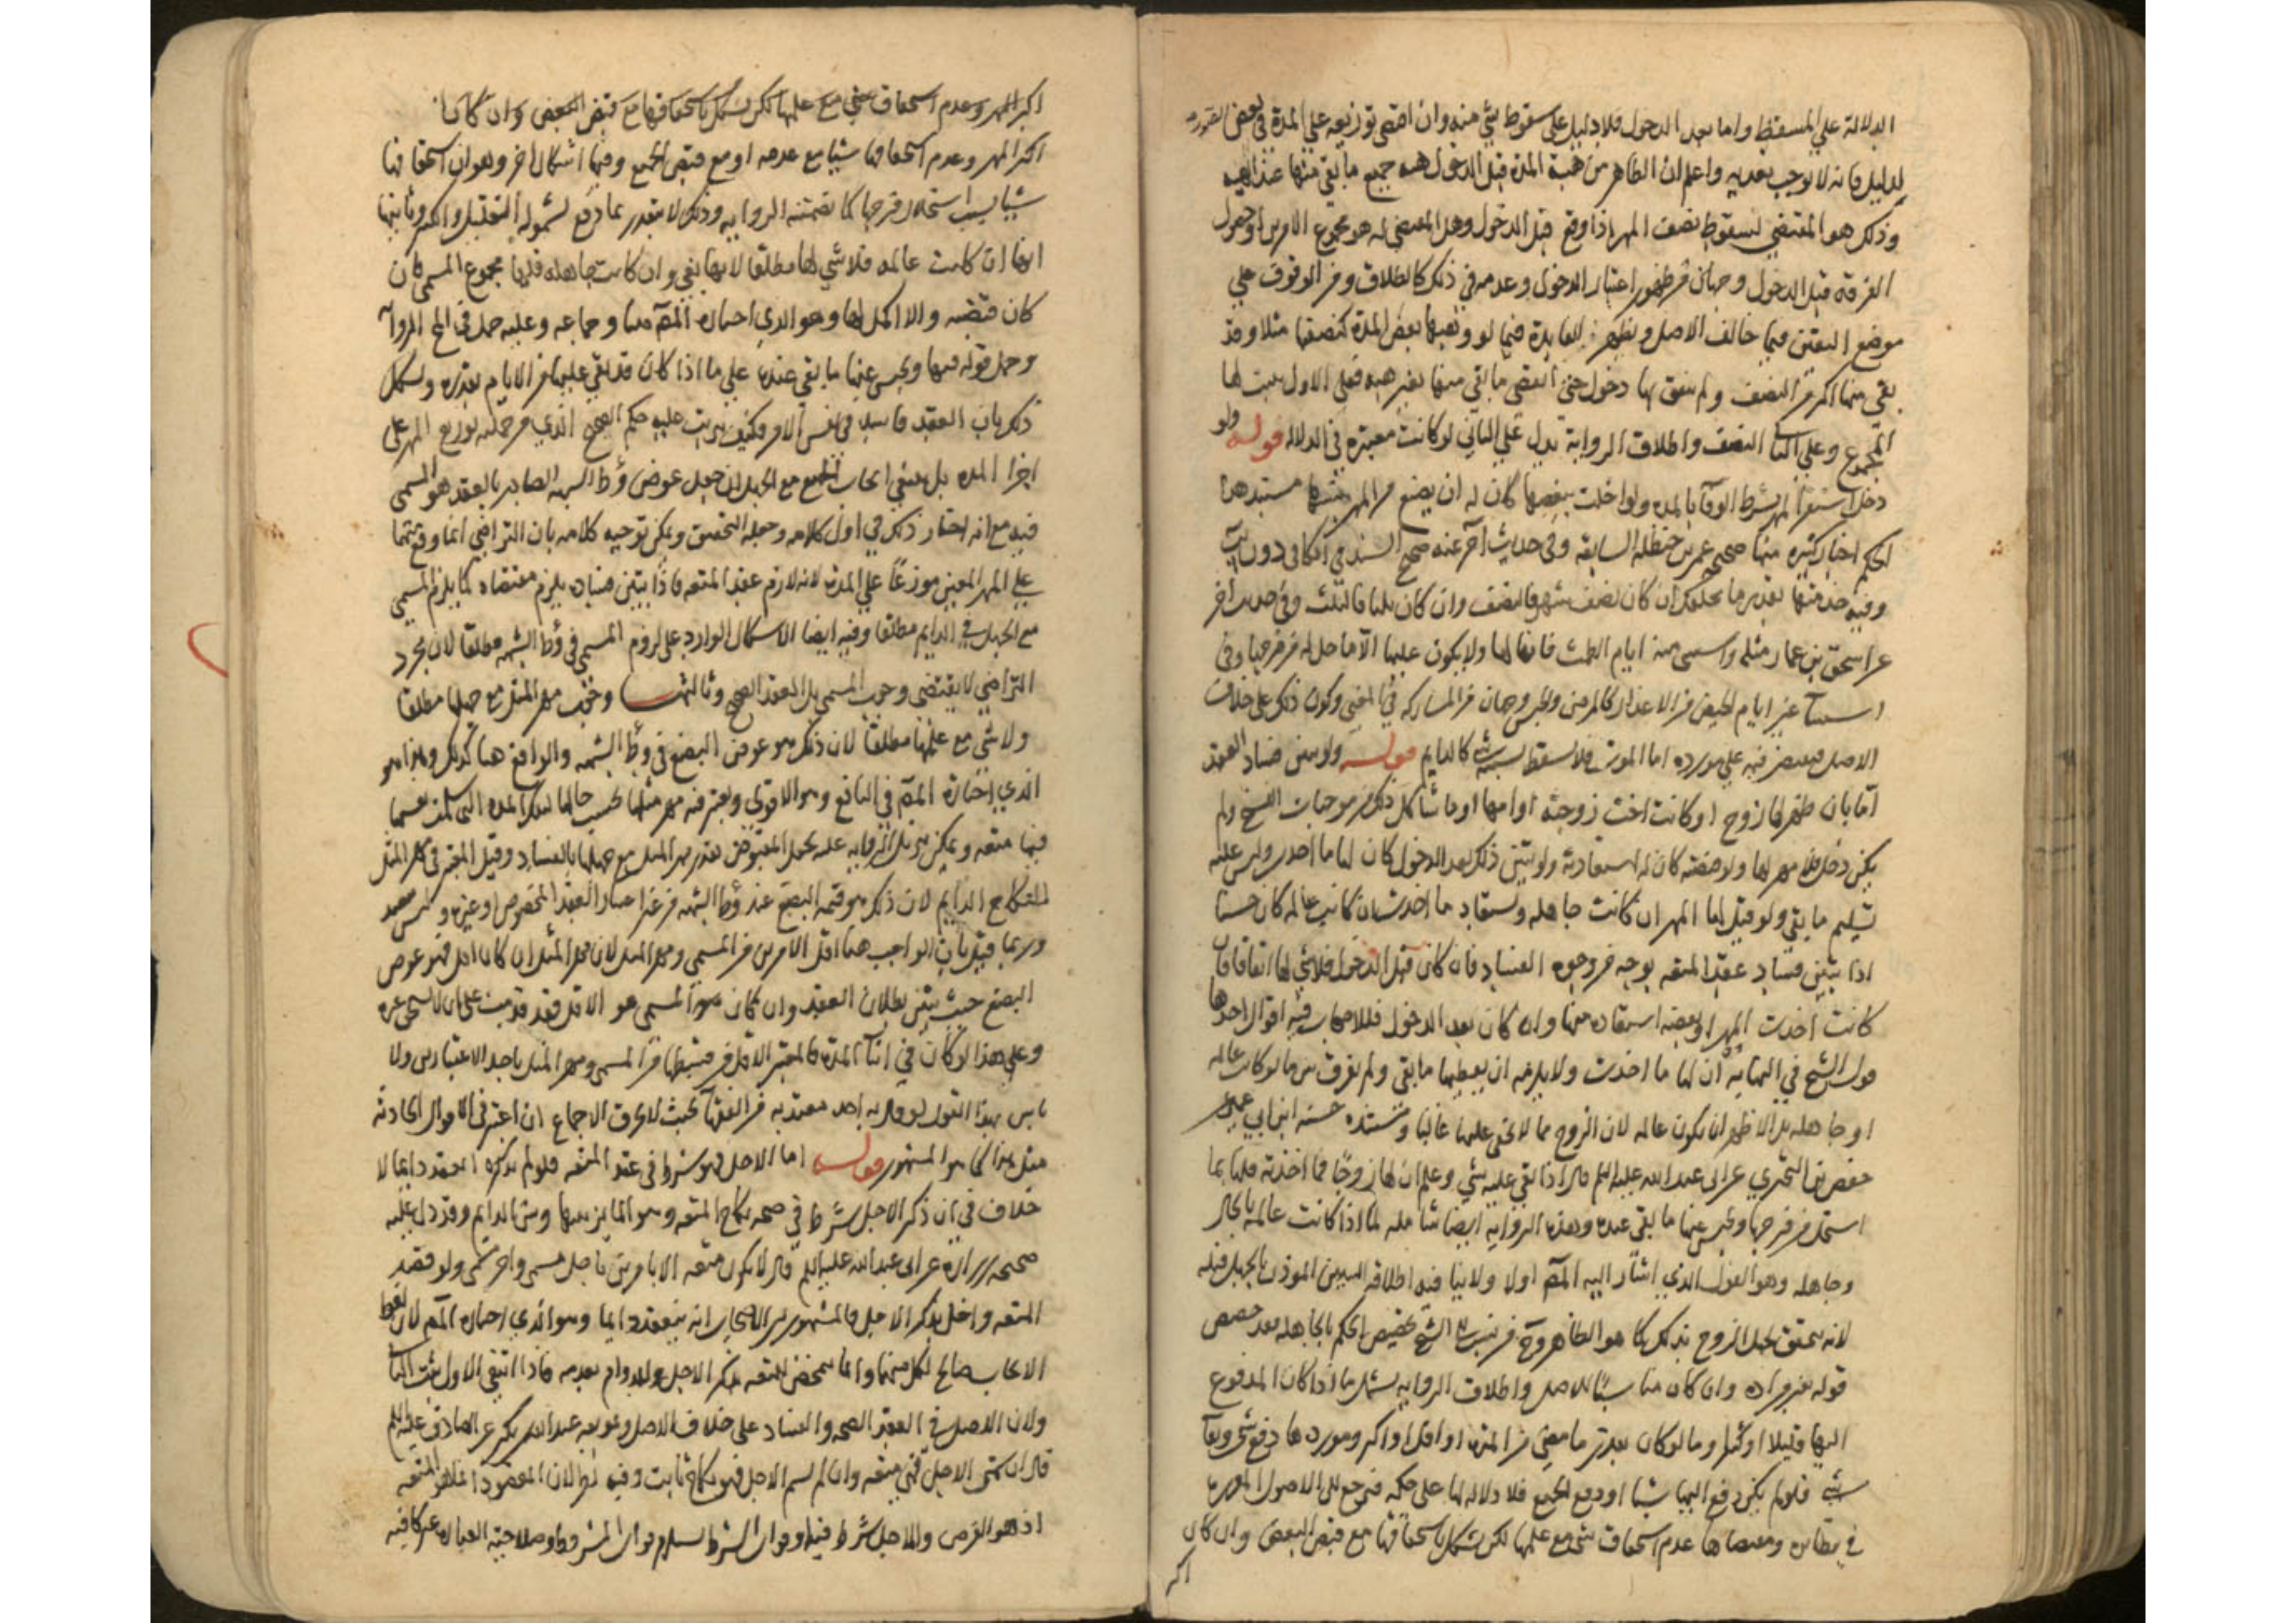 الدلالة علي المسقط واما بعد الدخول فلا دليل علي سقوط شي منه وان اقتضى توزيعه علي المدة في بعض الصور
لدليل فانه لا يوجب تعديه واعلم ان الظاهر من هبة المدة قبل الدخول هبه جميع ما بقي منها عند الهبه
وذلك هو المقتضي لسقوط نصف المهر اذا وقع قبل الدخول وهل المقتضي له هو مجموع الامرين او حصول
الفرقة قبل الدخول وجهان من ظهور اعتبار الدخول وعدمه في ذلك كالطلاق ومن الوقوف علي
موضع اليقين فيما خالف الاصل وتظهر الفايدة فيما لو وهبها بعض المدة كنصفها مثلا وقد
بقي منها اكثر من النصف ولم يتفق بها دخول حتى انقضى ما بقي منها بغير هبه فعلى الاول يثبت لها
المجموع وعلي الثاني النصف واطلاق الرواية يدل علي الثاني لو كانت معتبرة في الدلاله قوله ولو
دخل استقر المهر بشرط الوفا بالمده ولو اخلت ببعضها كان له ان يضع من المهر بنسبتها مستند هذا
الحكم اخبار كثيره منها صحيحه عمر بن حنظله السابقه وفي حديث آخر عنه صحيح السند في الكافي دون
وفيه خذ منها بقدر ما تخلفك ان كان نصف شهر فالنصف وان كان ثلثا فالثلث وفي حديث آخر
عن اسحق بن عمار مثله واستثنى منه ايام الطمث فانها لها ولا يكون عليها الا ما حل له من فرجها وفي
استثناء غير ايام الحيض من الاعذار كالمرض والحبس وجهان من المشاركه في المعنى وكون ذلك على خلاف
الاصل فيقتصر فيه علي مورده اما الموت فلا يسقط بسببه شي كالدايم قوله ولو تبين فساد العقد
اما بان ظهر لها زوج او كانت اخت زوجته او امها او ما شاكل ذلك من موجبات الفسخ ولم
يكن دخل فلا مهر لها ولو قبضته كان له استعادته ولو تبين ذلك بعد الدخول كان لها ما اخذت وليس عليه
تسليم ما بقي ولو قيل لها المهر ان كانت جاهله ويستعاد ما اخذت ان كانت عالمه كان حسنا
اذا تبين فساد عقد المتعه بوجه من وجوه الفساد فان كان قبل الدخول فلا شي لها اتفاقا فان
كانت اخذت المهر او بعضه استعاده منها وان كان بعد الدخول فللاصحاب فيه اقوال احدها
قول الشيخ في النهايه ان لها ما اخذت ولا يلزمه ان يعطيها ما بقي ولم يفرق بين ما لو كانت عالمه
او جاهله بل الاظهر ان يكون عالمه لان الزوج مما لا يخفى عليها غالبا ومستنده حسنه ابن ابي عمير
حفص بن البختري عن ابي عبد الله عليه السلم قال اذا بقي عليه شي وعلم ان لها زوجا فما اخذته فلها بما
استحل من فرجها ويحبس عنها ما بقي عنده وهذه الروايه ايضا شامله لما اذا كانت عالمة بالحال
وجاهله وهو القول الذي اشار اليه المصَ اولا ولا ينافيه اطلاقه التبين الموذن بالجهل قبله
لانه يتحقق بجهل الزوج بذلك كما هو الظاهر وح فنسبة الشيخ تخصيص الحكم بالجاهله بعد حصص
قوله بغير مراده وان كان مناسبا للاصل واطلاق الروايه يشمل ما اذا كان المدفوع
اليها قليلا او كثيرا وما لو كان بقدر ما مضى من المده او اقل او اكثر وموردها دفع شي وبقا
شي فلو لم يكن دفع اليها شيا او دفع الجميع فلا دلاله لها على حكمه فيرجع الى الاصول المقرره
في نظايره ومقتضاها عدم استحقاق شي مع علمها لكن يشكل باستحقاقها مع قبض البعض وان كان
اكثر
اكثر المهر وعدم استحقاق شي مع علمها لكن يشكل باستحقاقها مع قبض البعض وان كانا
اكثر المهر وعدم استحقاقها شيا مع عدمه او مع قبض الجميع وفيها اشكال آخر وهو ان استحقاقها
شيا بسبب استحلال فرجها كما تضمنته الروايه وذلك لا يتقدر بما دفع لشموله القليل والكثير وثانيها
انها ان كانت عالمه فلا شي لها مطلقا لانها بغي وان كانت جاهله فلها مجموع المسمى فان
كان قبضته والا اكمل لها وهو الذي اختاره المصَ هنا وجماعه وعليه حمل الروايه
وحمل قوله فيها ويحبس عنها ما بقي عنده علي ما اذا كان قد بقي عليها من الايام بقدره ويشكل
ذلك بان العقد فاسد في نفس الامر فكيف يترتب عليه حكم الصحيح الذي من جملته توزيع المهر على
اجزا المده بل ينبغي ايجاب الجميع مع الجهل ان جعل عوض وطا الشبهه الصادر بالعقد هو المسمى
فيه مع انه اختار ذلك في اول كلامه وجعله التحقيق ويمكن توجيه كلامه بان التراضي انما وقع منهما
على المهر المعين موزعا علي المدة لانه لازم عقد المتعه فاذا تبين فساده يلزم مقتضاه كما يلزم المسمى
مع الجهل في الدايم مطلقا وفيه ايضا الاشكال الوارد على لزوم المسمى في وطا الشبهه مطلقا لان مجرد
التراضي لا يقتضى وجوب المسمى بل العقد الصحيح وثالثها وجوب مهر المثل مع جهلها مطلقا
ولا شي مع علمها مطلقا لان ذلك هو عوض البضع في وطا الشبهه والواقع هنا كذلك وهذا هو
الذي اختاره المصَ في النافع وهو الاقوى ويعتبر فيه مهر مثلها بحسب حالها لتلك المده التي سلمت نفسها
فيها متعه ويمكن تنزيل الروايه عليه بحمل المقبوض بقدر مهر المثل مع جهلها بالفساد وقيل المعتبر في مهر المثل
للنكاح الدايم لان ذلك هو قيمه البضع عند وطا الشبهه من غير اعتبار العقد المخصوص او غيره وليس ببعيد
وربما قيل بان الواجب هنا اقل الامرين من المسمى ومهر المثل لان مهر المثل ان كان اقل فهو عوض
البضع حيث تبين بطلان العقد وان كان المسمى هو الاقل فقد قدمت على ان لا تستحق غيره
وعلى هذا لو كان في اثناء المدة فالمعتبر الاقل من قسطها من المسمى ومهر المثل باحد الاعتبارين ولا
باس بهذا القول لو قال به احد معتد به من الفقها بحيث لا يخرق الاجماع ان اعتبر في الاقوال الحادثه
مثل هذا كما هو المشهور قوله اما الاجل فهو شرط في عقد المتعه فلو لم يذكره انعقد دايما لا
خلاف في ان ذكر الاجل شرط في صحه نكاح المتعه وهو المايز بينها وبين الدايم وقد دل عليه
صحيحه زراره عن ابي عبد الله عليه السلم قال لا يكون متعه الا بامرين باجل مسمى واجر مسمى ولو قصد
المتعه واخل بذكر الاجل فالمشهور بين الاصحاب انه ينعقد دايما وهو الذي اختاره المصَ لان لفظ
الايجاب صالح لكل منهما وانما يتمحض للمتعه بذكر الاجل وللدوام بعدمه فاذا انتفى الاول ثبت الثاني
ولان الاصل في العقد الصحه والفساد على خلاف الاصل وموثقه عبد الله بن بكير عن الصادق عليه السلم
قال ان سمى الاجل فهو متعه وان لم يسم الاجل فهو نكاح ثابت وفيه نظر لان المقصود انما هو المتعه
اذ هو الفرض والاجل شرط فيها وفوات الشرط يستلزم فوات المشروط وصلاحية العباره غير كافيه